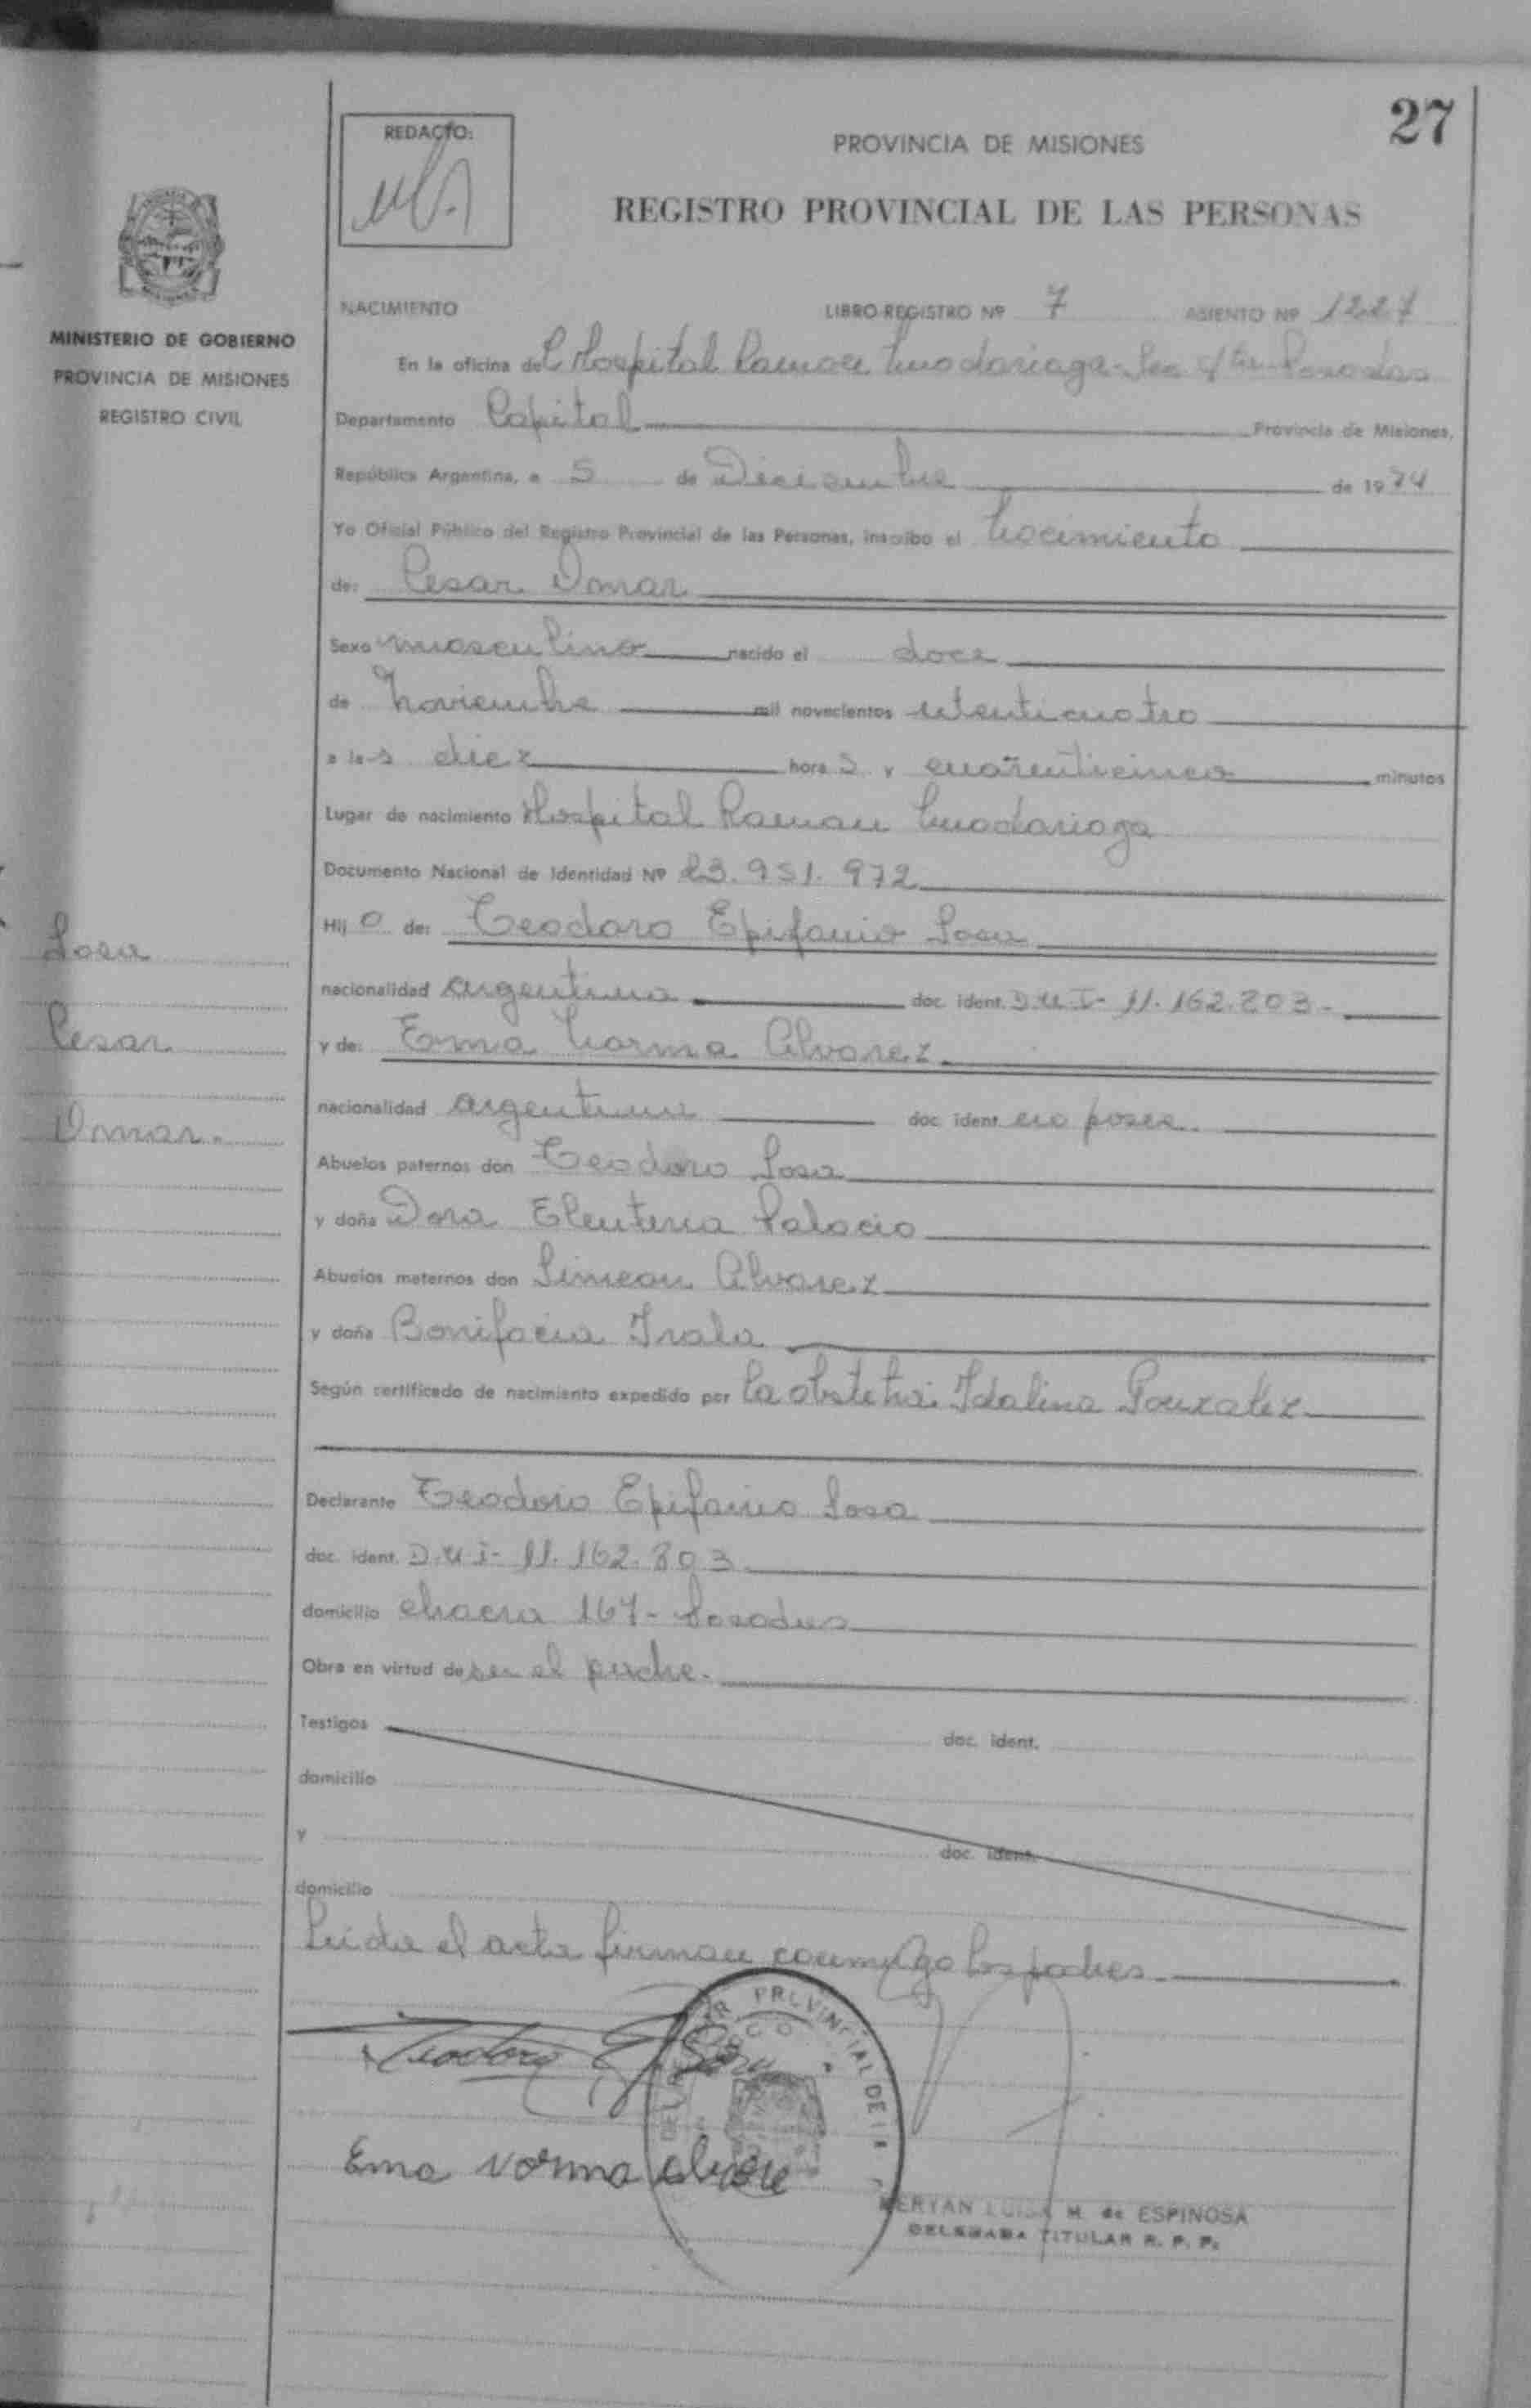 27
REDACTO:
PROVINCIA DE MISIONES
REGISTRO PROVINCIAL DE LAS PERSONAS
MINISTERIO DE GOBIERNO
PROVINCIA DE MISIONES
REGISTRO CIVIL
NACIMIENTO LIBRO-REGISTRO Nº 7 ASIENTO Nº 1227
En la oficina del Hospital Ramon Madariaga - Posadas
Departamento Capital Provincia de Misiones,
República Argentina, a 5 de Diciembre de 1974
Yo Oficial Público del Registro Provincial de las Personas, inscribo el Nacimiento
de: Cesar Omar
Sexo masculino nacido el doce
de Noviembre mil novecientos setenticuatro
a las diez horas y cuarenticinco minutos
Lugar de nacimiento Hospital Ramon Madariaga
Documento Nacional de Identidad Nº 23.951.972
Hijo de: Teodoro Epifanio Sosa
nacionalidad argentina doc. ident. D.U.I- 11.162.803-
y de: Ema Norma Alvarez
nacionalidad argentina doc. ident. no posee.
Abuelos paternos don Teodoro Sosa
y doña Dora Eleuteria Palacio
Abuelos maternos don Simeon Alvarez
y doña Bonifacia Irala
Según certificado de nacimiento expedido por la obstetra: Idalina Gonzalez
Declarante Teodoro Epifanio Sosa
doc. ident. D.U.I- 11.162.803
domicilio chacra 167- Posadas
Obra en virtud de ser el padre.
Testigos doc. ident.
domicilio
y doc. ident.
domicilio
Leida el acta firman conmigo los padres
Sosa
Cesar
Omar.
Teodoro E. Sosa
PROVINCIAL DE
Ema Norma
LUISA M. de ESPINOSA
DELEGADA TITULAR R. P. P.